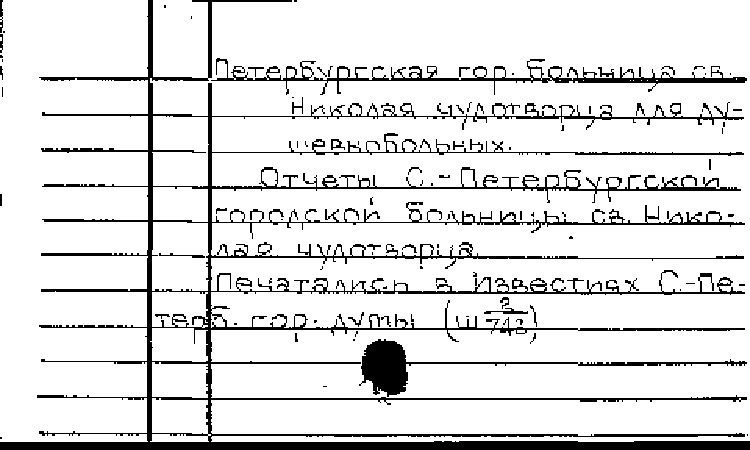 Петербургская гор. больница св.
Николая чудотворца для ду-
шевнобольных.
Отчеты С.-Петербургской
городской больницы св. Нико-
лая чудотворца.
Печатались в Известиях С.-Пе-
терб. гор. думы (Ш 2/743)